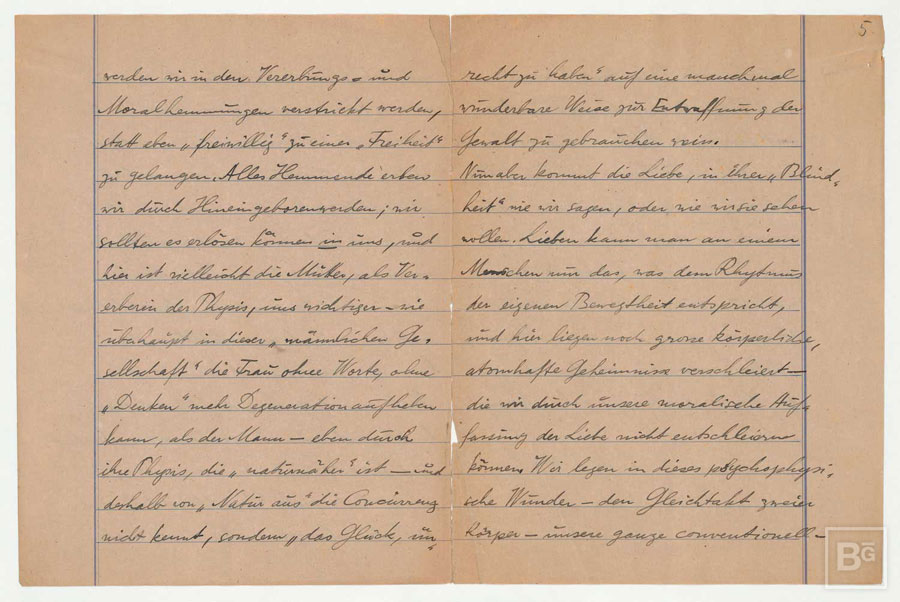 5.
werden wir in den Vererbungs- und
Moralhemmungen verstrickt werden,
statt eben „freiwillig“ zu einer „Freiheit“
zu gelangen. Alles Hemmende erben
wir durch Hineingeborenwerden; wir
sollten es erlösen können in uns, und
hier ist vielleicht die Mutter, als Ver-
erberin der Physis, uns wichtiger – wie
überhaupt in dieser „männlichen Ge-
sellschaft“ die Frau ohne Worte, ohne
„Denken“ mehr Degeneration aufheben
kann, als der Mann – eben durch
ihre Physis, die „naturnäher“ ist – und
deshalb von „Natur aus“ die Concurrenz
nicht kennt, sondern „das Glück, un-
recht zu haben“ auf eine manchmal
wunderbare Weise zur Entwaffnung der
Gewalt zu gebrauchen weiss.
Nun aber kommt die Liebe, in Ihrer „Blind-
heit“ wie wir sagen, oder wie wir sie sehen
wollen. Lieben kann man an einem
Menschen nur das, was dem Rhytmus
der eigenen Bewegtheit entspricht,
und hier liegen noch grosse körperliche,
atomhafte Geheimnisse verschleiert –
die wir durch unsere moralische Auf-
fassung der Liebe nicht entschleiern
können. Wir legen in dieses psychophysi-
sche Wunder – den Gleichtakt zweier
Körper – unsere ganze conventionell –
BG